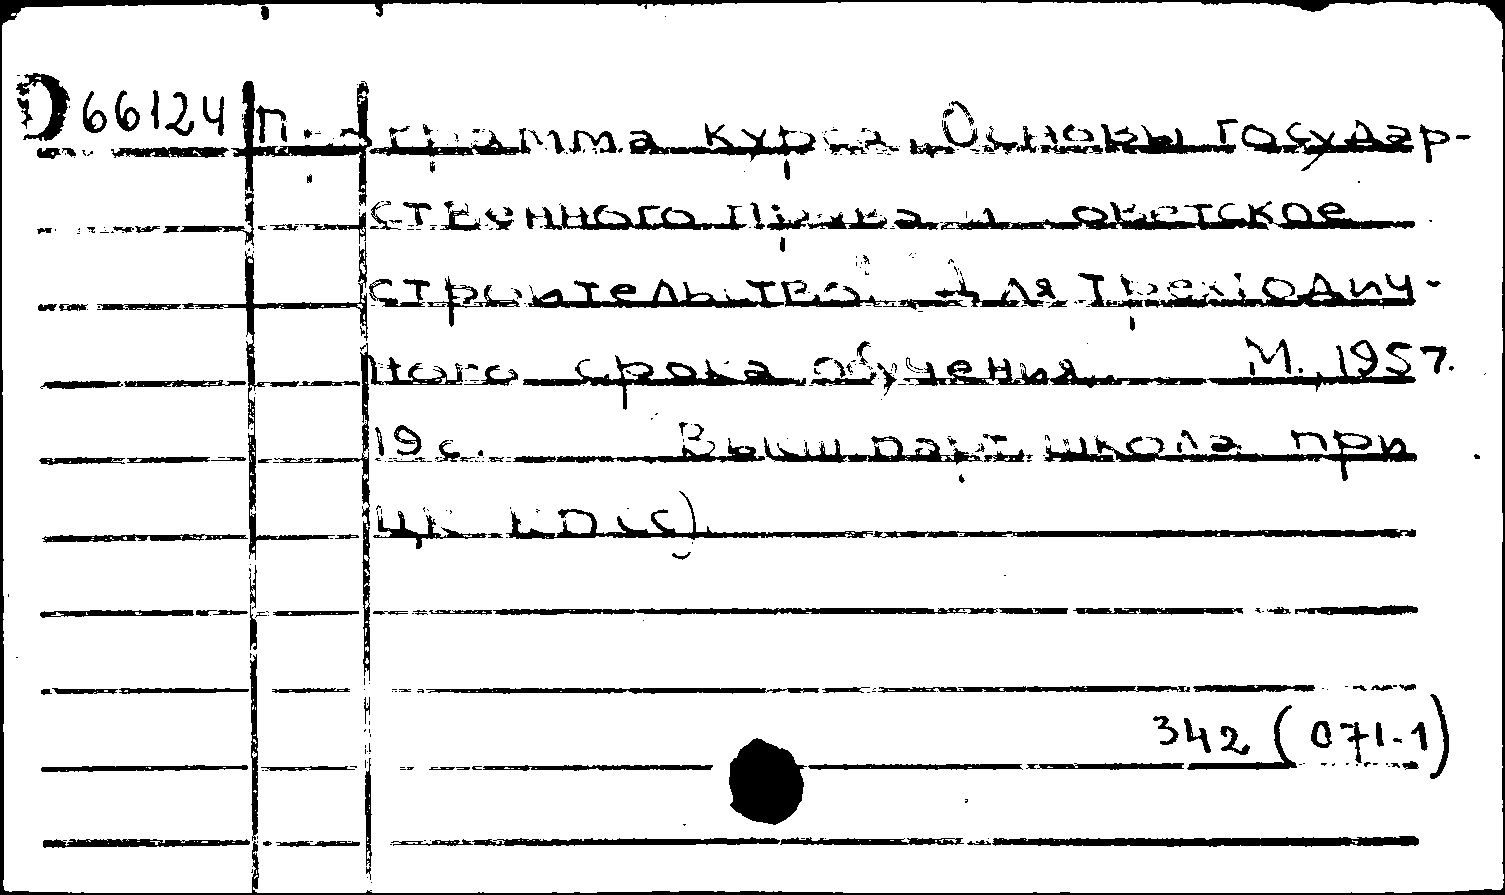 D 66124 Программа курса „Основы государ-
ственного права и советское
строительство". Для трехгодич-
ного срока обучения. М., 1957.
19 с. (Высш. парт. школа при
ЦК КПСС).
342 (071.1)